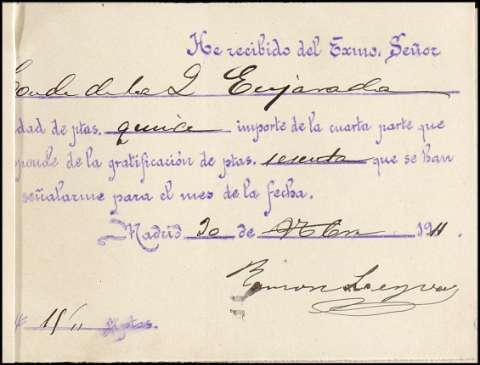 He recibido del Exmo. Señor
Conde de la Q Enjarada
dad de ptas. quince importe de la cuarta parte que
sponde de la gratificación de ptas. sesenta que se han
señalarme para el mes de la fecha.
Madrid 20 de 1911.
Ramon
15 ptas.